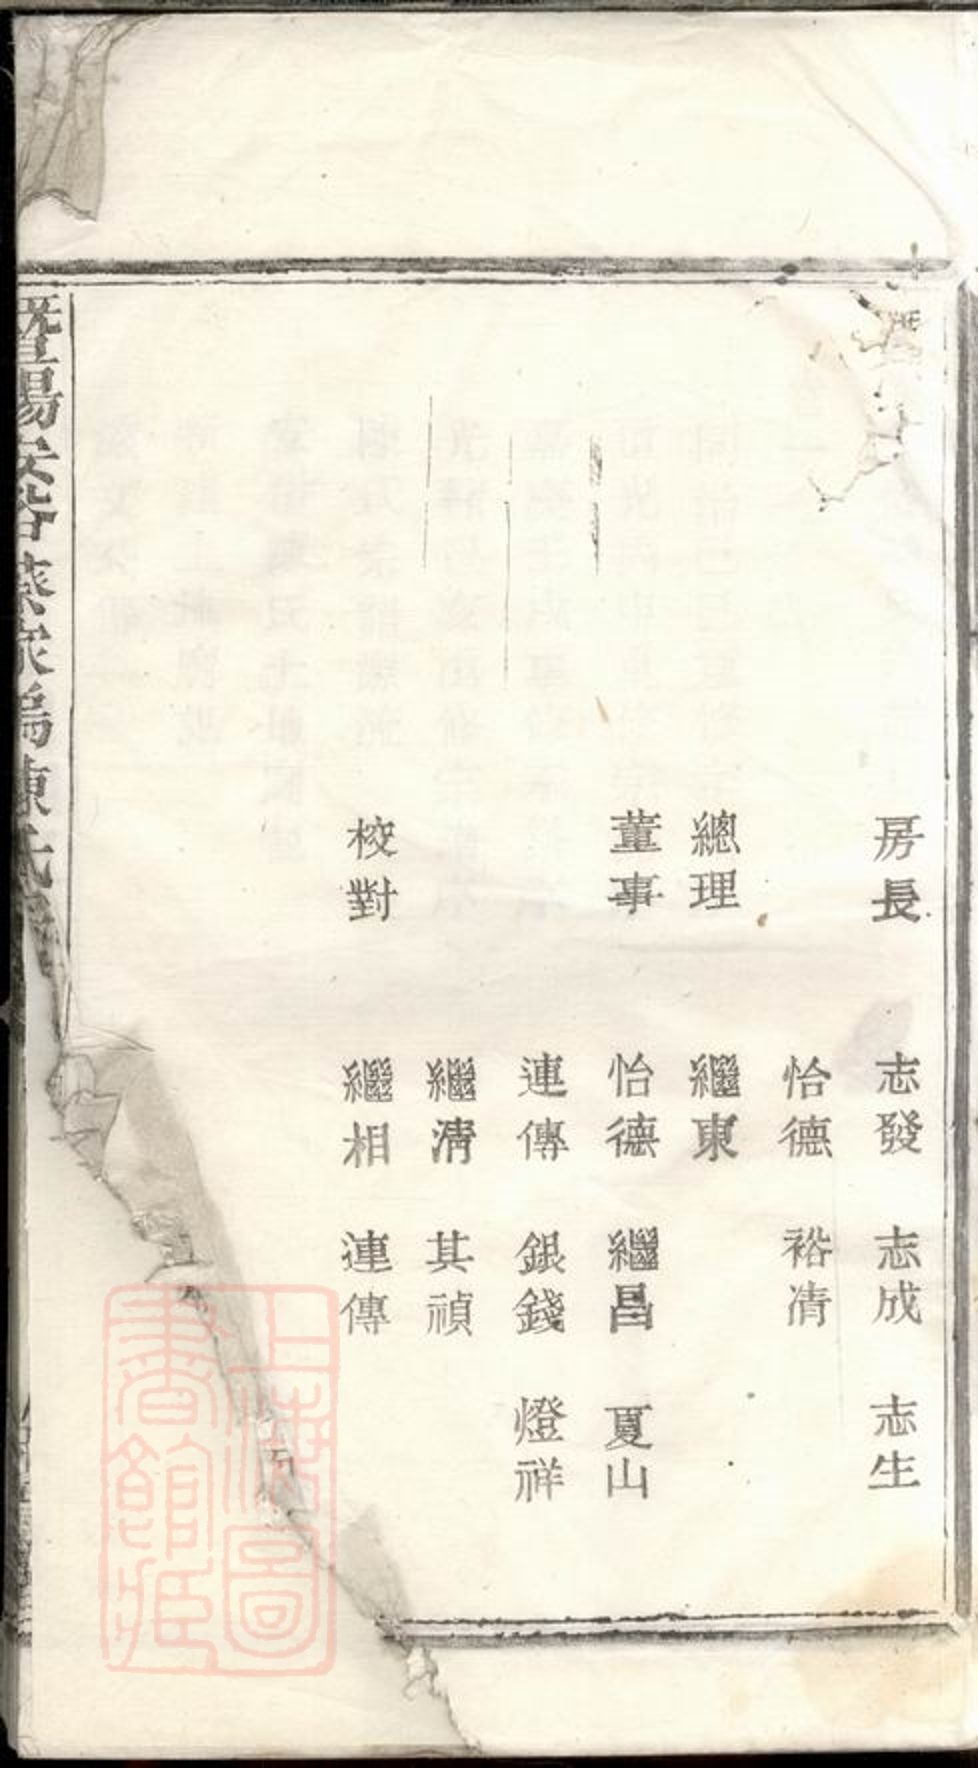 房長 志發 志成 志生
怡德 裕清
總理 繼東
董事 怡德 繼昌 夏山
連傳 銀錢 燈祥
繼清 其禎
校對 繼相 連傳
暨陽 蔡家塢陳氏
上海圖書館藏